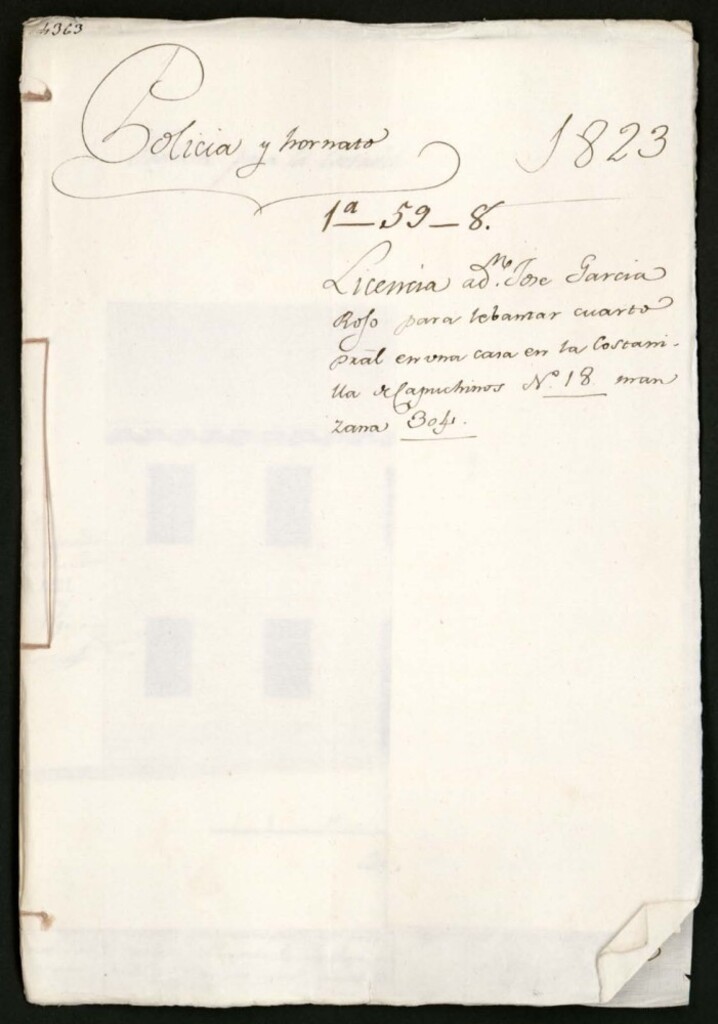 4363
Policia y hornato
1823
1ª-59-8.
Licencia a dn. Jose Garcia
Roso para lebantar cuarto
pral en una casa en la Costani-
lla de Capuchinos Nº 18 man
zana 304.